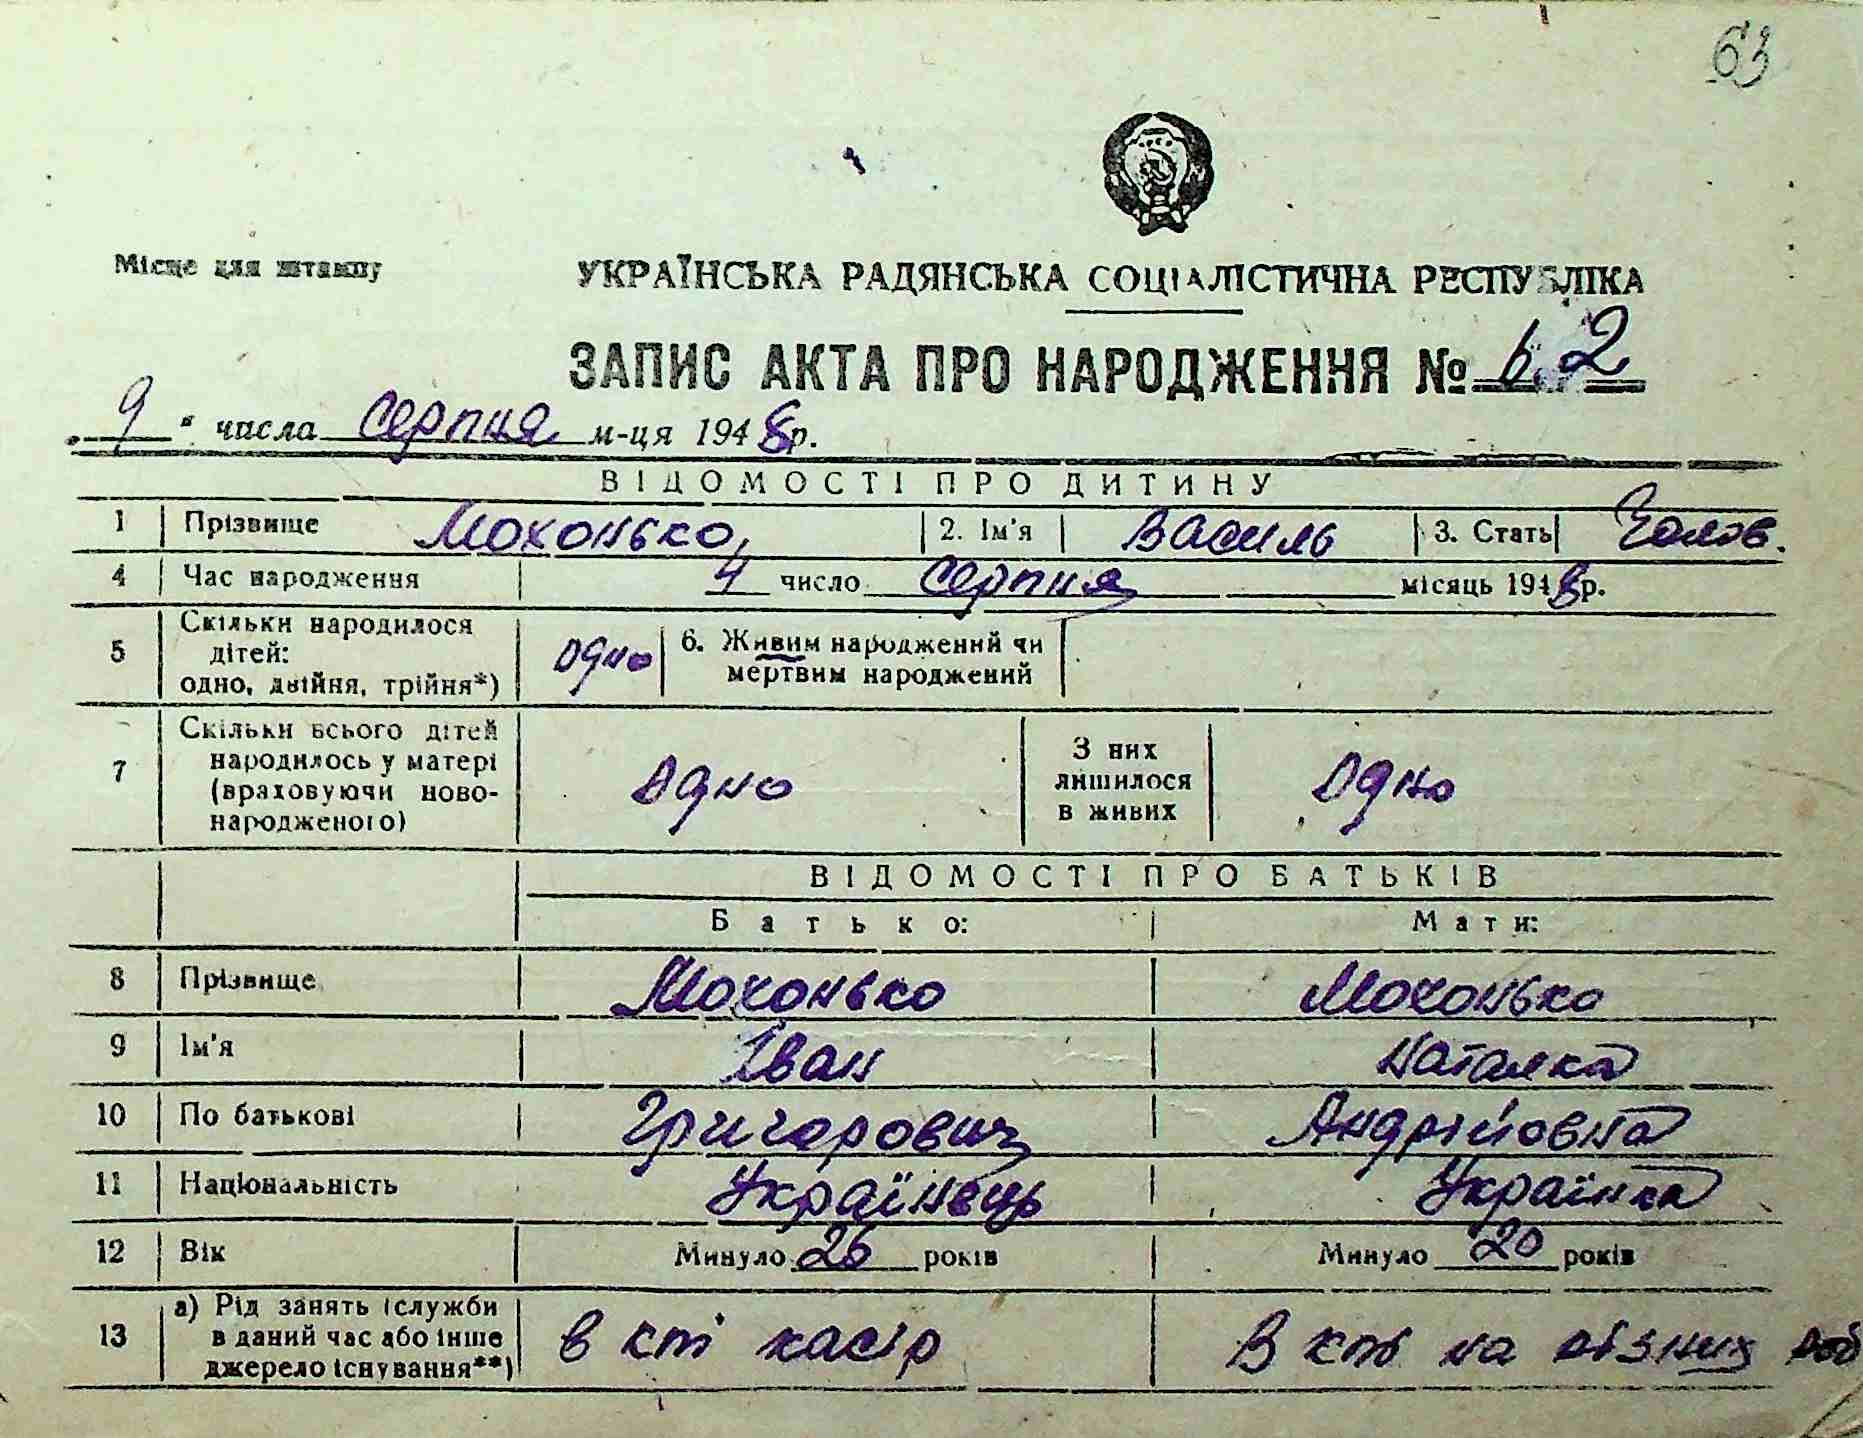 63
Місце для штампу
УКРАЇНСЬКА РАДЯНСЬКА СОЦІАЛІСТИЧНА РЕСПУБЛІКА
ЗАПИС АКТА ПРО НАРОДЖЕННЯ № 62
„ 9 " числа серпня м-ця 1948 р.
ВІДОМОСТІ ПРО ДИТИНУ
1 Прізвище Мохонько, 2. Ім'я Василь 3. Стать Чолов.
4 Час народження 4 число серпня місяць 1948 р.
5 Скільки народилося дітей: одно, двійня, трійня*) одно 6. Живим народжений чи мертвим народжений
7 Скільки всього дітей народилось у матері (враховуючи новонародженого) Одно З них лишилося в живих Одно
ВІДОМОСТІ ПРО БАТЬКІВ
Батько: Мати:
8 Прізвище Мохонько Мохонько
9 Ім'я Іван Наталка
10 По батькові Григорович Андріївна
11 Національність Українець Українка
12 Вік Минуло 26 років Минуло 20 років
13 а) Рід занять (служби в даний час або інше джерело існування**) в кгті касір В кгті на різних роб